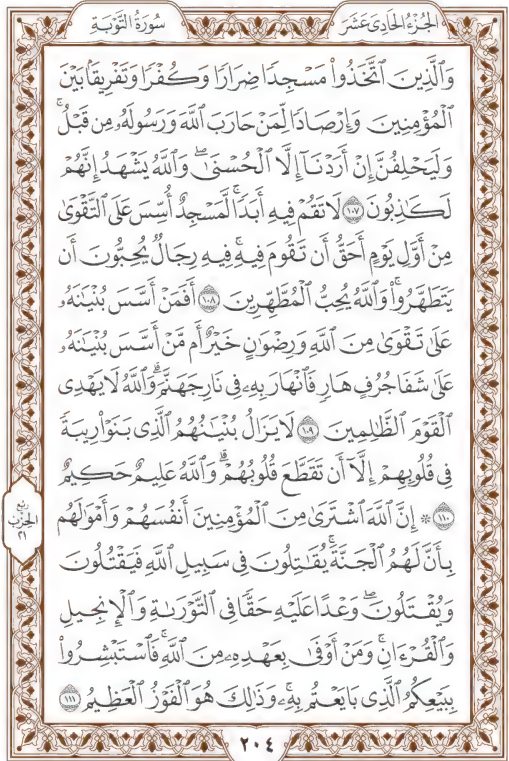 الجُزْءُ الحَادِى عَشَرَ
سُورَةُ التَّوْبَةِ
وَٱلَّذِينَ ٱتَّخَذُوا۟ مَسْجِدًا ضِرَارًا وَكُفْرًا وَتَفْرِيقًۢا بَيْنَ
ٱلْمُؤْمِنِينَ وَإِرْصَادًا لِّمَنْ حَارَبَ ٱللَّهَ وَرَسُولَهُۥ مِن قَبْلُ ۚ
وَلَيَحْلِفُنَّ إِنْ أَرَدْنَآ إِلَّا ٱلْحُسْنَىٰ ۖ وَٱللَّهُ يَشْهَدُ إِنَّهُمْ
لَكَـٰذِبُونَ ١٠٧ لَا تَقُمْ فِيهِ أَبَدًا ۚ لَّمَسْجِدٌ أُسِّسَ عَلَى ٱلتَّقْوَىٰ
مِنْ أَوَّلِ يَوْمٍ أَحَقُّ أَن تَقُومَ فِيهِ ۚ فِيهِ رِجَالٌ يُحِبُّونَ أَن
يَتَطَهَّرُوا۟ ۚ وَٱللَّهُ يُحِبُّ ٱلْمُطَّهِّرِينَ ١٠٨ أَفَمَنْ أَسَّسَ بُنْيَـٰنَهُۥ
عَلَىٰ تَقْوَىٰ مِنَ ٱللَّهِ وَرِضْوَٰنٍ خَيْرٌ أَم مَّنْ أَسَّسَ بُنْيَـٰنَهُۥ
عَلَىٰ شَفَا جُرُفٍ هَارٍ فَٱنْهَارَ بِهِۦ فِى نَارِ جَهَنَّمَ ۗ وَٱللَّهُ لَا يَهْدِى
ٱلْقَوْمَ ٱلظَّـٰلِمِينَ ١٠٩ لَا يَزَالُ بُنْيَـٰنُهُمُ ٱلَّذِى بَنَوْا۟ رِيبَةً
فِى قُلُوبِهِمْ إِلَّآ أَن تَقَطَّعَ قُلُوبُهُمْ ۗ وَٱللَّهُ عَلِيمٌ حَكِيمٌ
١١٠ ۞ إِنَّ ٱللَّهَ ٱشْتَرَىٰ مِنَ ٱلْمُؤْمِنِينَ أَنفُسَهُمْ وَأَمْوَٰلَهُم
بِأَنَّ لَهُمُ ٱلْجَنَّةَ ۚ يُقَـٰتِلُونَ فِى سَبِيلِ ٱللَّهِ فَيَقْتُلُونَ
وَيُقْتَلُونَ ۖ وَعْدًا عَلَيْهِ حَقًّا فِى ٱلتَّوْرَىٰةِ وَٱلْإِنجِيلِ
وَٱلْقُرْءَانِ ۚ وَمَنْ أَوْفَىٰ بِعَهْدِهِۦ مِنَ ٱللَّهِ ۚ فَٱسْتَبْشِرُوا۟
بِبَيْعِكُمُ ٱلَّذِى بَايَعْتُم بِهِۦ ۚ وَذَٰلِكَ هُوَ ٱلْفَوْزُ ٱلْعَظِيمُ ١١١
رُبْعُ
الحِزْبِ
٢١
٢٠٤